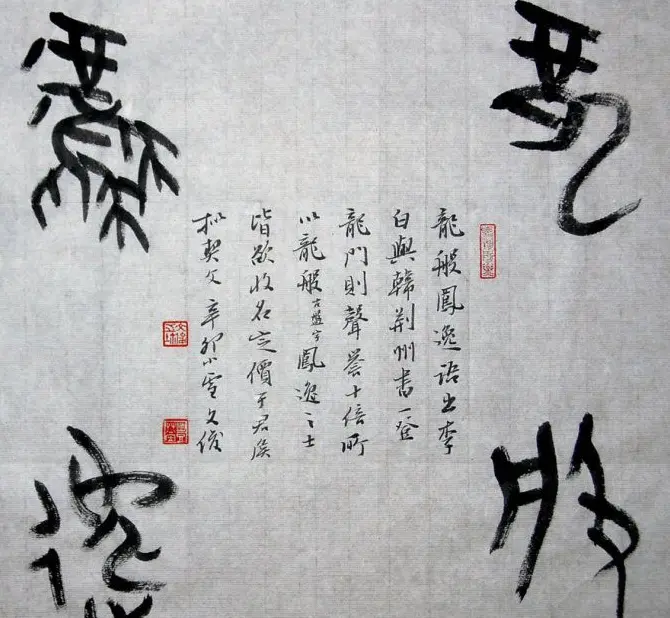 龍
般
鳳
逸
龍般鳳逸語出李
白與韓荆州書一登
龍門則聲譽十倍所
以龍般古盤字鳳逸之士
皆欲收名定價于君侯
契文辛卯小雪文俊